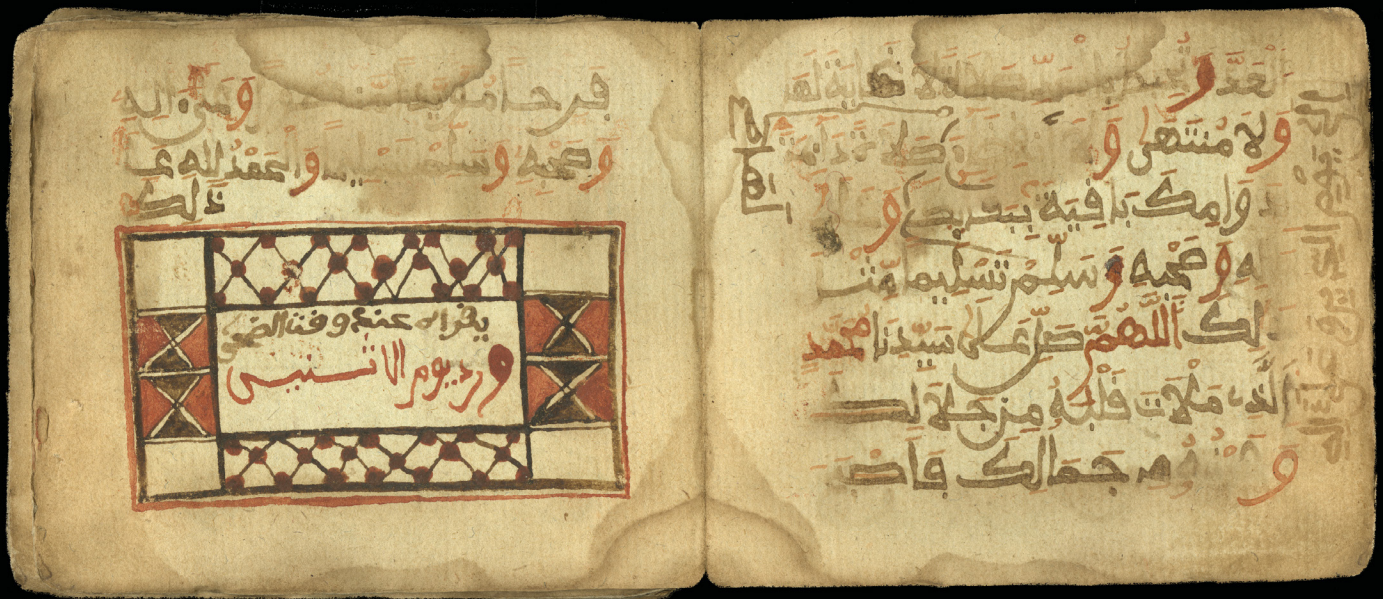 العد وتحيط بالحد صلاة لا غاية لها
ولا منتهى و صلاة دائمة
دوامك باقية ببقائك و
له وصحبه وسلم تسليما مثل
ذلك اللهم صل على سيدنا محمد
الذي ملات قلبه من جلالك
و من جمالك فاصبح
فرحا مؤيدا وعلى اله
وصحبه وسلم تسليما والحمد لله على
ذلك
يقراه عند وقت الضحى
ورد يوم الاثنين